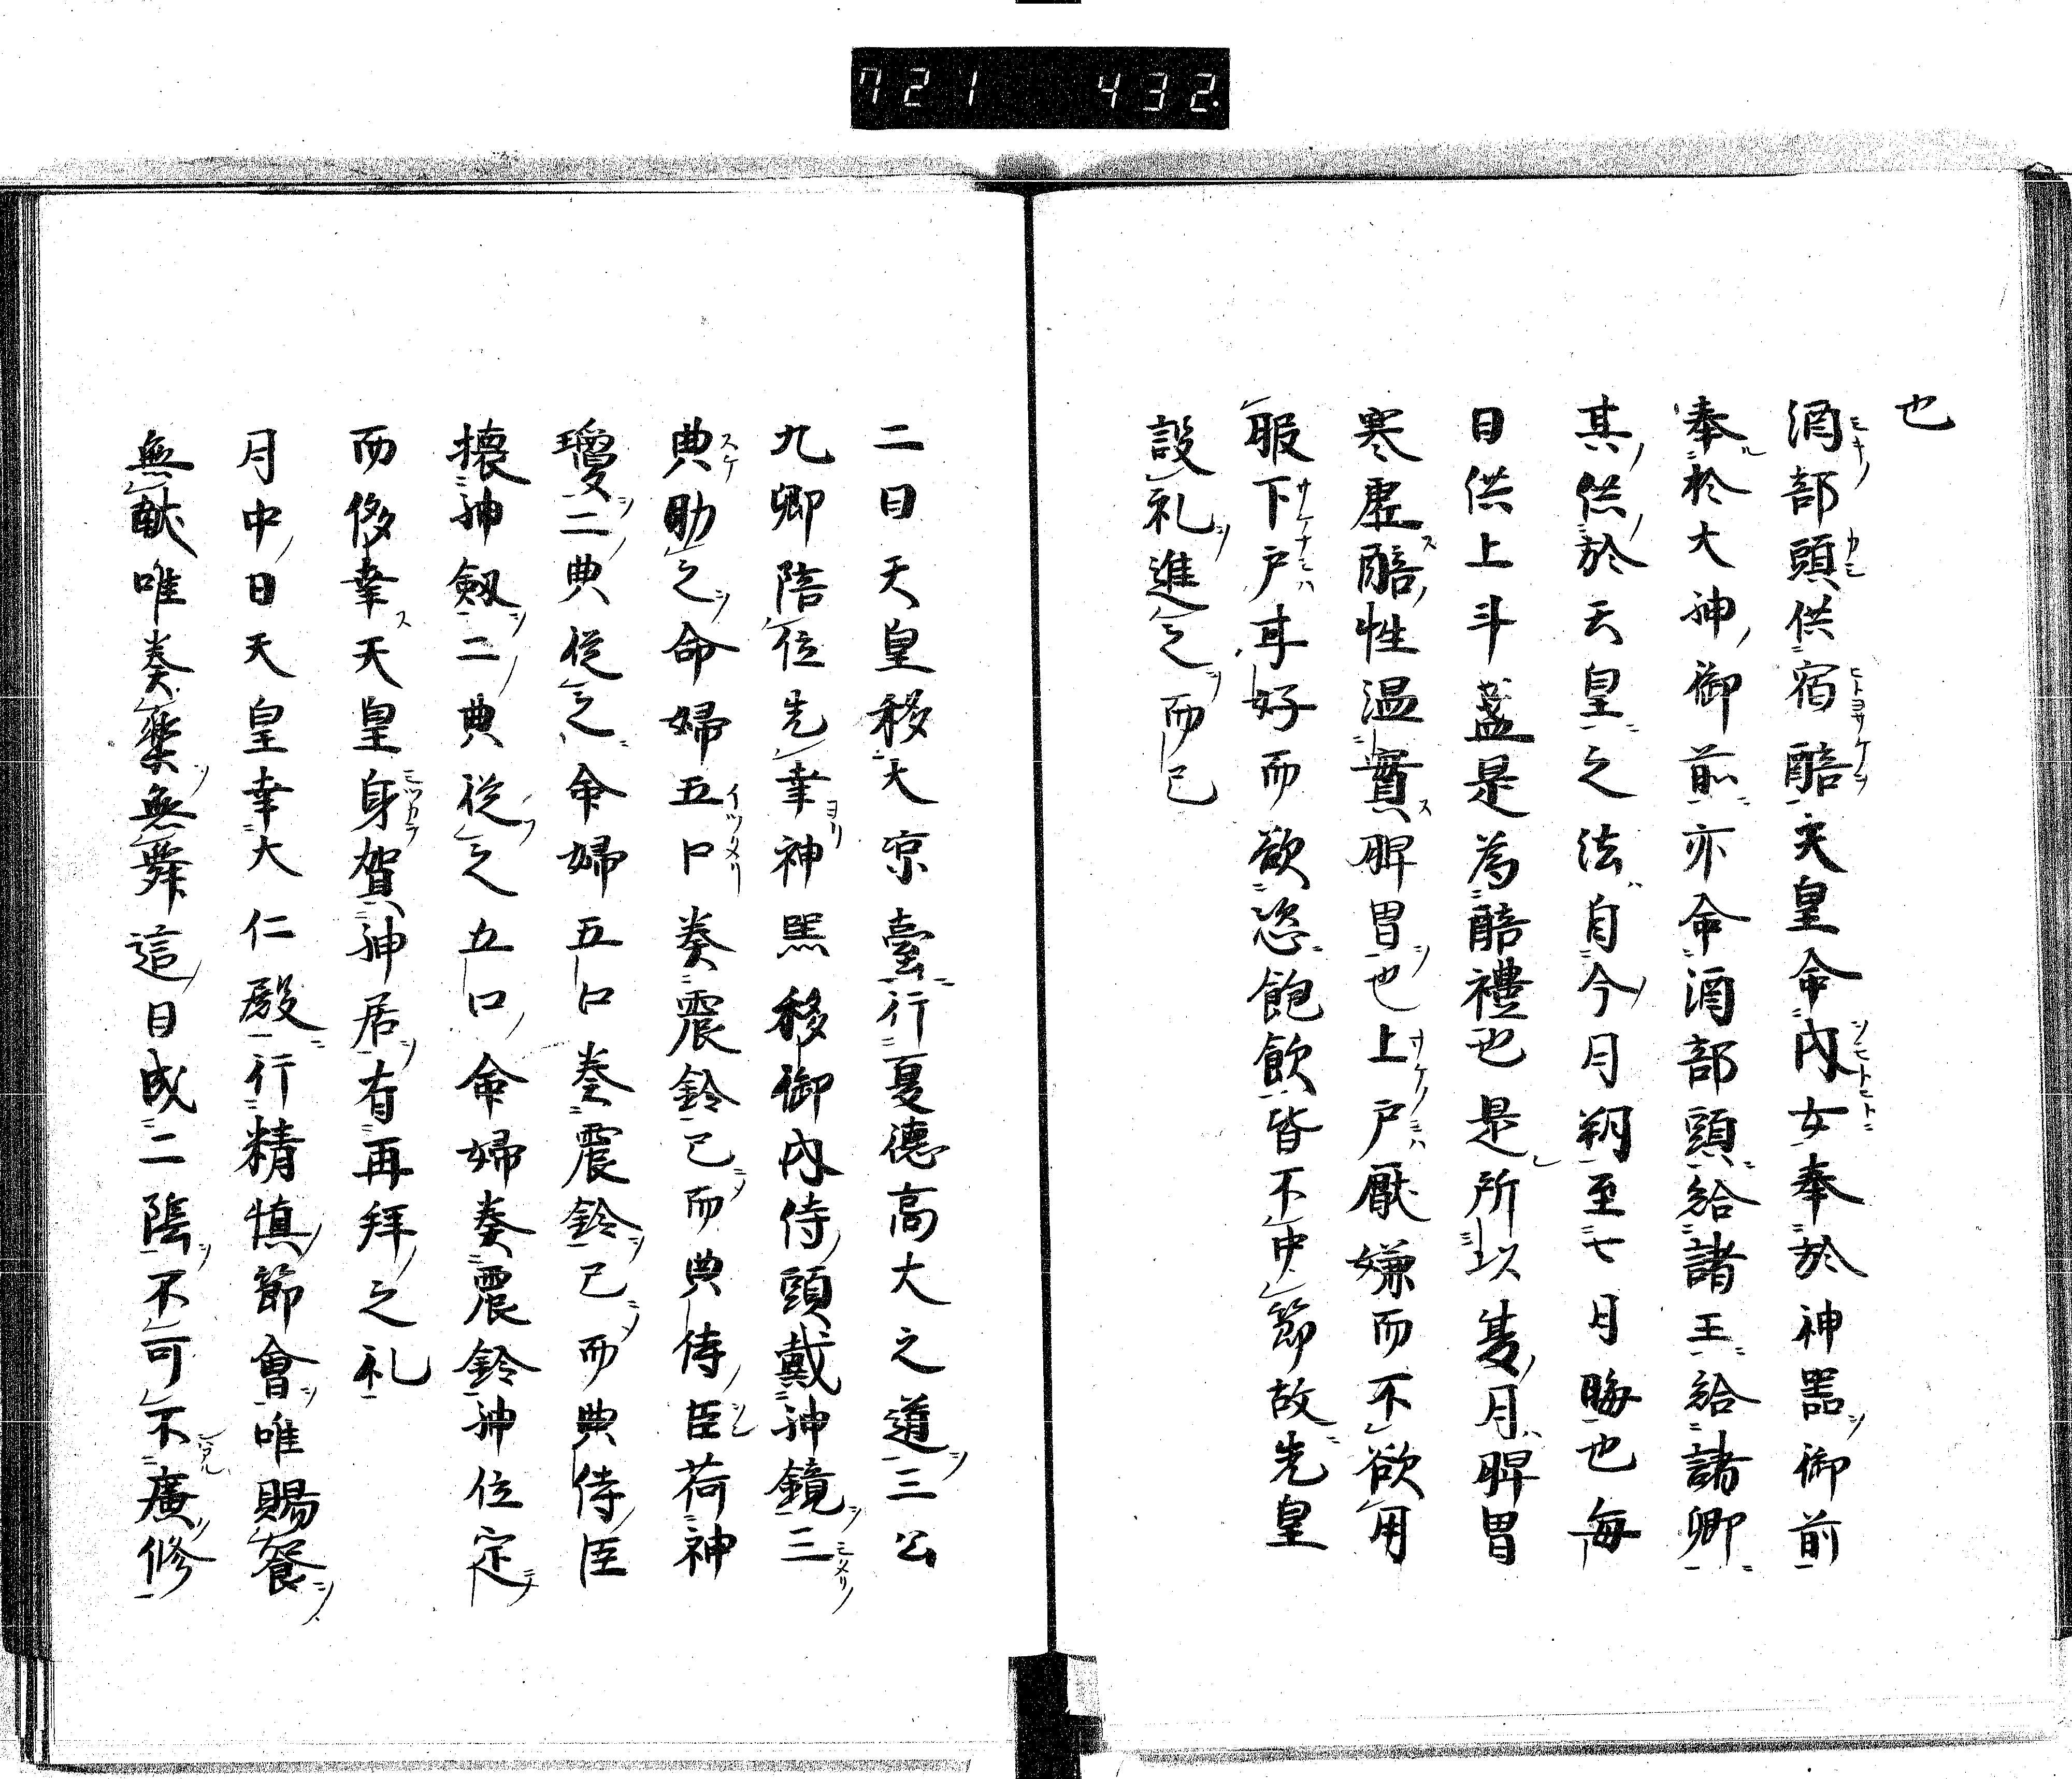 721 432.
也
酒部頭供宿醅天皇命内女奉於神器御前
奉於大神御前亦命酒部頭給諸王給諸卿
其供於天皇之法自今月朔至七月晦也毎
日供上斗盞是為醅禮也是所以夏月脾胃
寒虚醅性温實脾胃也上戸厭嫌而不欲用
服下戸耳好而欲恣飽飲皆不中節故先皇
設礼進之而已
二日天皇移大凉臺行夏德高大之道三公
九卿陪位先幸神器移御内侍頭戴神鏡三
典助之命婦五口奏震鈴已而典侍臣荷神
瓊二典從之命婦五口奏震鈴已而典侍臣
懐神劔二典從之五口命婦奏震鈴神位定
而侈幸天皇身賀神居有再拜之礼
月中日天皇幸大仁殿行精慎節會唯賜餐
無献唯奏樂無舞這日成二陰不可不廣修